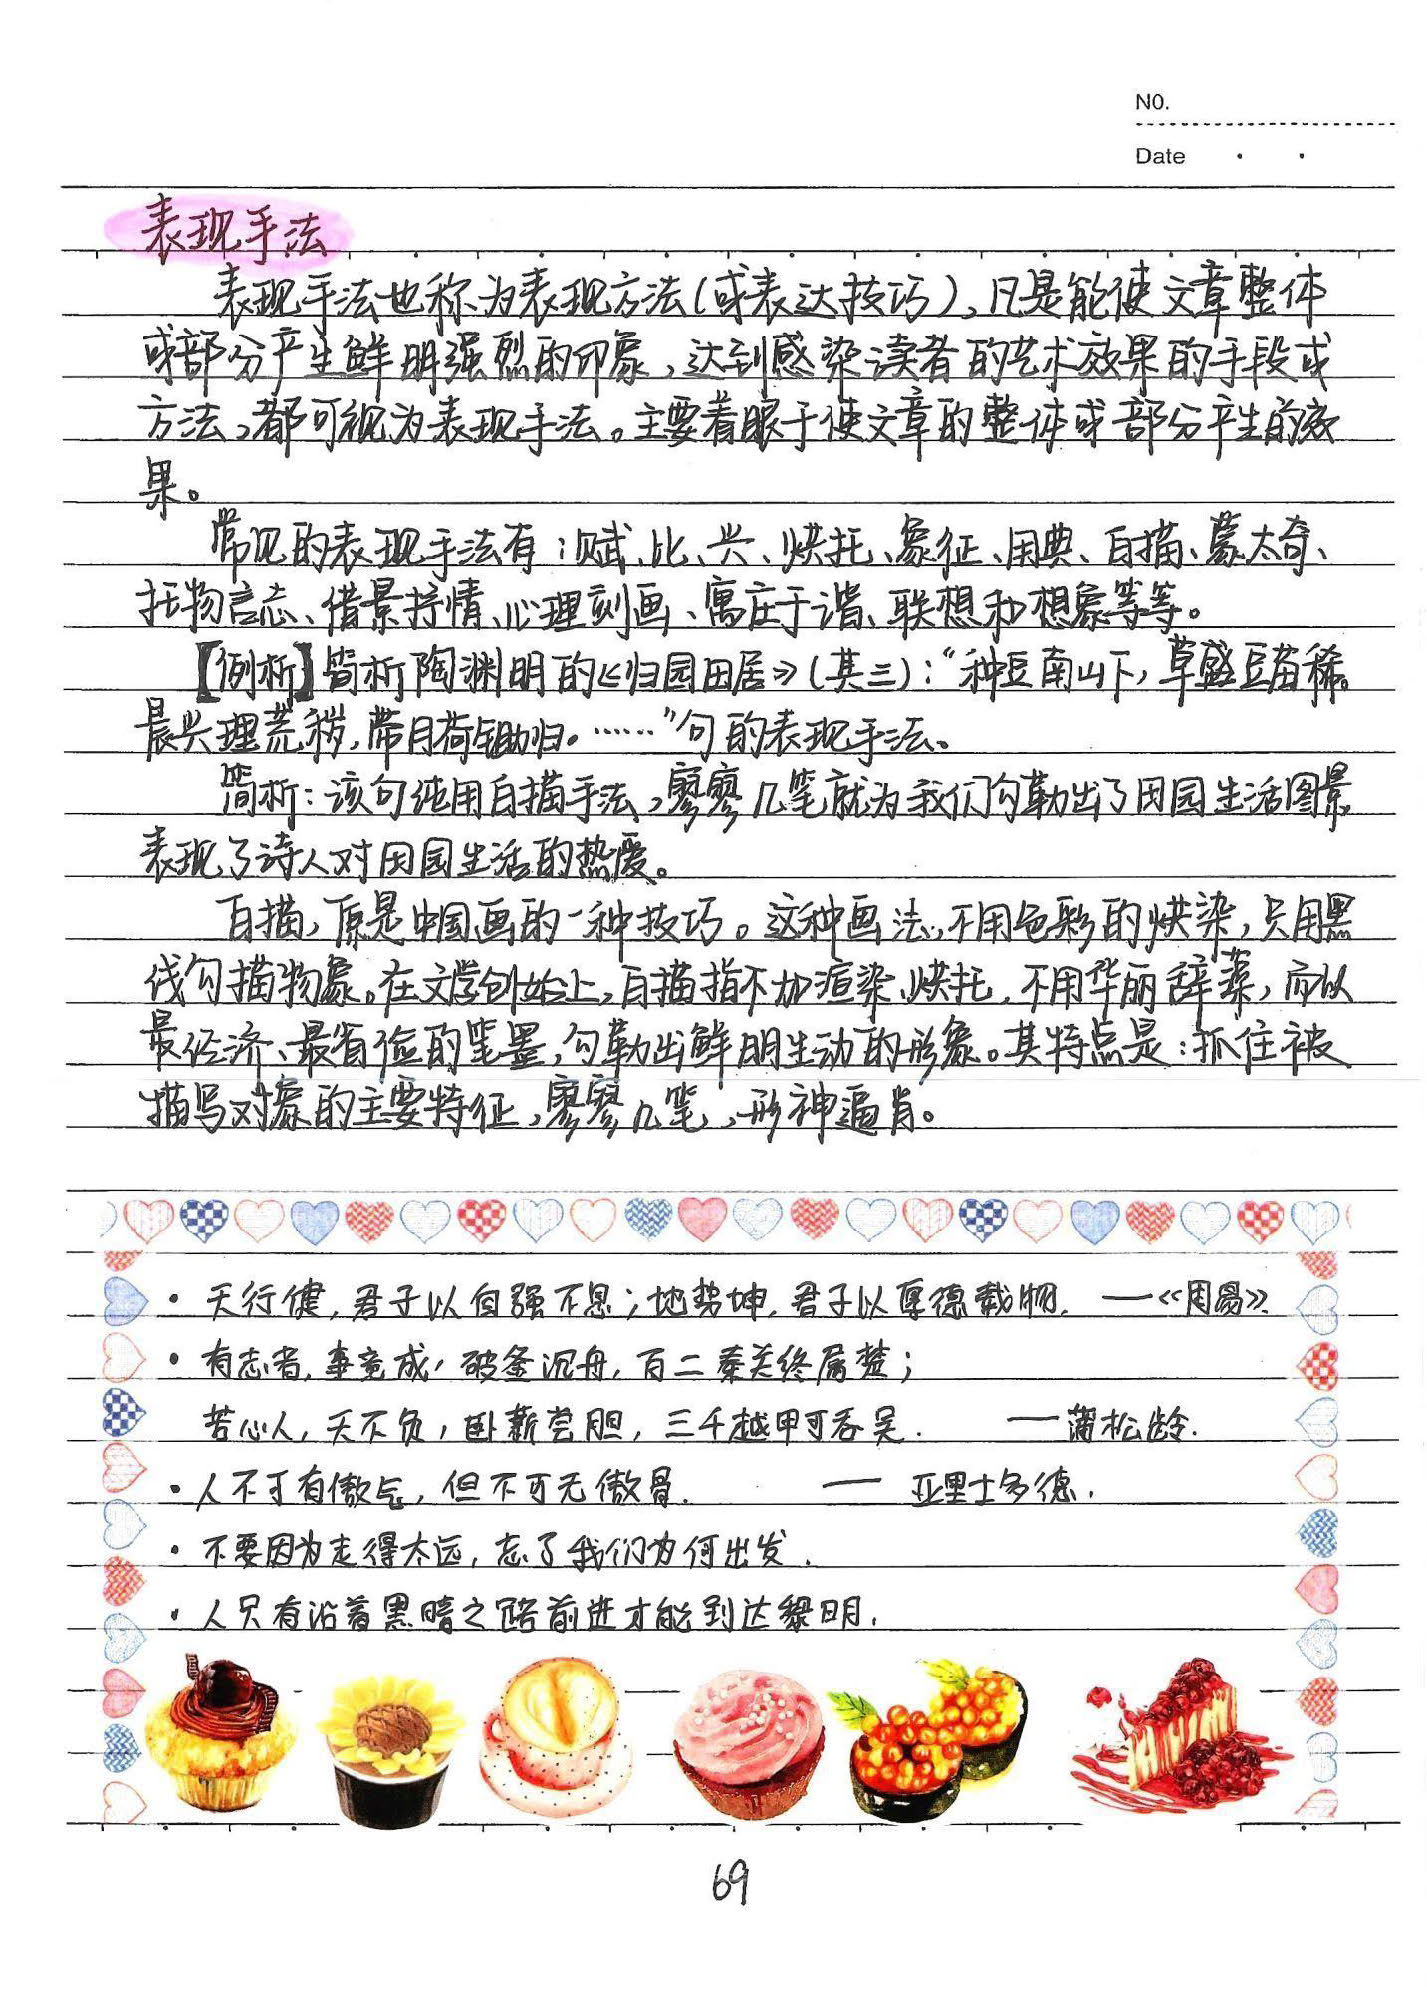 NO.
Date
表现手法
表现手法也称为表现方法(或表达技巧),凡是能使文章整体
或部分产生鲜明强烈的印象,达到感染读者的艺术效果的手段或
方法,都可视为表现手法。主要着眼于使文章的整体或部分产生的效
果。
常见的表现手法有:赋、比、兴、烘托、象征、用典、白描、蒙太奇、
托物言志、借景抒情、心理刻画、寓庄于谐、联想和想象等等。
【例析】简析陶渊明的《归园田居》(其三):“种豆南山下,草盛豆苗稀。
晨兴理荒秽,带月荷锄归。……”句的表现手法。
简析:该句纯用白描手法,寥寥几笔就为我们勾勒出了田园生活图景
表现了诗人对田园生活的热爱。
白描,原是中国画的一种技巧。这种画法,不用色彩的烘染,只用黑
线勾描物象。在文学创始上,白描指不加渲染、烘托,不用华丽辞藻,而以
最经济、最省俭的笔墨,勾勒出鲜明生动的形象。其特点是:抓住被
描写对象的主要特征,寥寥几笔,形神逼肖。
· 天行健,君子以自强不息;地势坤,君子以厚德载物. ——《周易》.
· 有志者,事竟成,破釜沉舟,百二秦关终属楚;
苦心人,天不负,卧薪尝胆,三千越甲可吞吴. ——蒲松龄.
· 人不可有傲气,但不可无傲骨. —— 亚里士多德.
· 不要因为走得太远,忘了我们为何出发.
· 人只有沿着黑暗之路前进才能到达黎明.
69